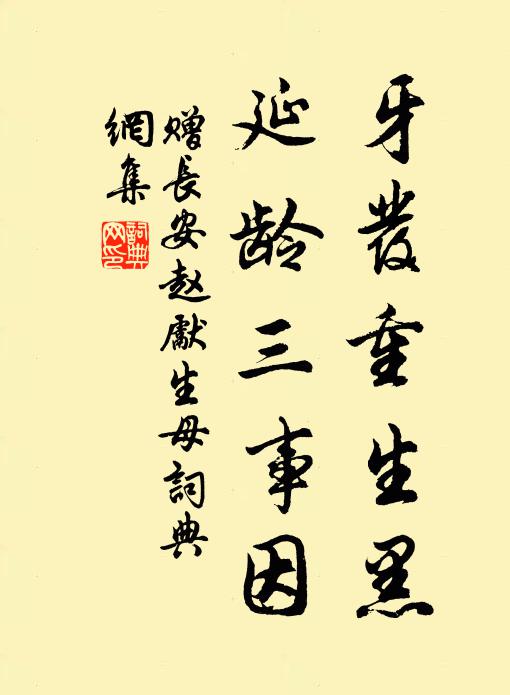 牙发重生黑
延龄三事因
赠長安赵獻生母詞典
網集
詞典
网印